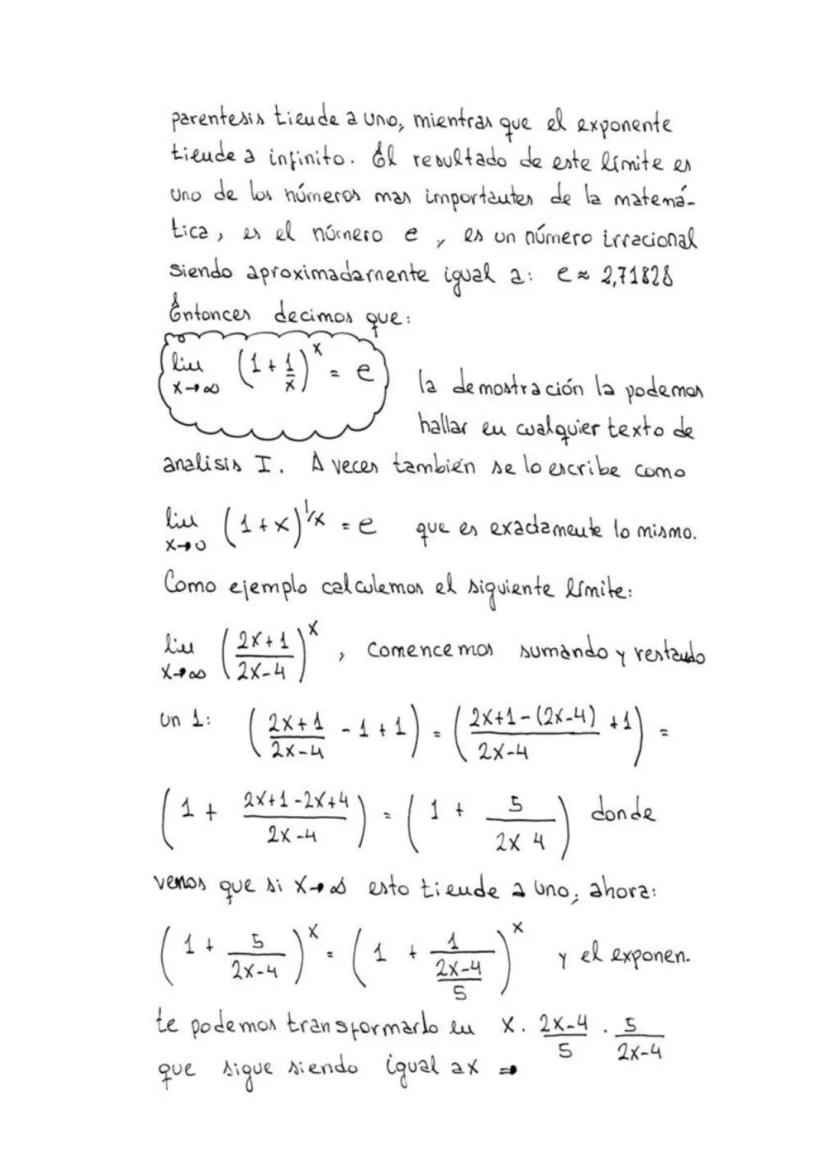 parentesis tiende a uno, mientras que el exponente
tiende a infinito. El resultado de este límite es
uno de los números mas importantes de la matemá-
tica, es el número e, es un número irracional
siendo aproximadamente igual a: e ≈ 2,71828
Entonces decimos que:
lim x→∞ (1 + 1/x)^x = e
la demostración la podemos
hallar en cualquier texto de
analisis I. A veces también se lo escribe como
lim x→0 (1 + x)^(1/x) = e que es exactamente lo mismo.
Como ejemplo calculemos el siguiente límite:
lim x→∞ ((2x+1)/(2x-4))^x , comencemos sumando y restando
un 1: ((2x+1)/(2x-4) - 1 + 1) = ((2x+1-(2x-4))/(2x-4) + 1) =
(1 + (2x+1-2x+4)/(2x-4)) = (1 + 5/(2x 4)) donde
vemos que si x→∞ esto tiende a uno; ahora:
(1 + 5/(2x-4))^x = (1 + 1/((2x-4)/5))^x y el exponen-
te podemos transformarlo en x · (2x-4)/5 · 5/(2x-4)
que sigue siendo igual a x ⇒